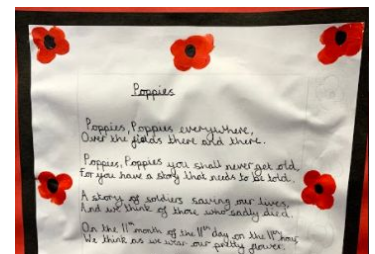 Poppies
Poppies, Poppies everywhere,
Over the fields there and there.
Poppies, Poppies you shall never get old,
For you have a story that needs to be told.
A story of soldiers saving our lives,
And we think of those who sadly died.
On the 11th month of the 11th day on the 11th hour
We think as we wear our pretty flower.